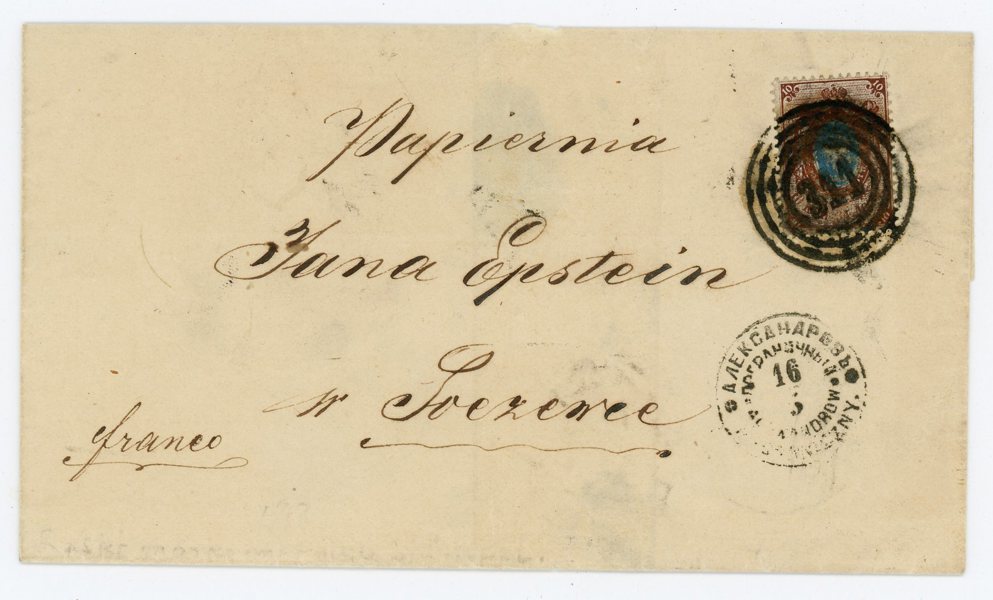 Papiernia
Jana Epstein
w Soczewce
franco
10 10
АЛЕКСАНДРОВЪ
ПОГРАНИЧНЫЙ
16
5